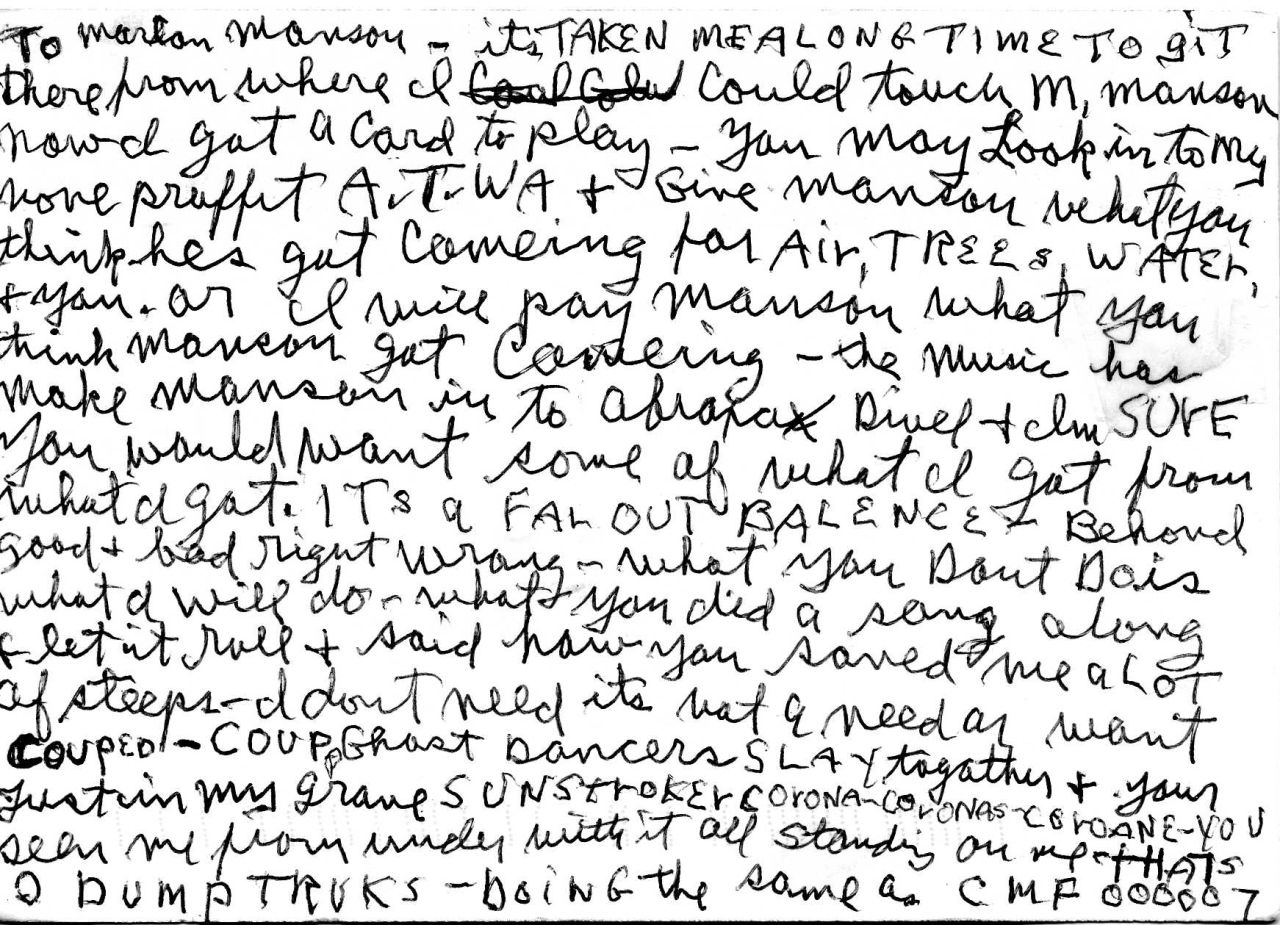 To Marlon Manson – its TAKEN ME A LONG TIME TO giT
there from where I Could touch M, Manson
now I got a Card to play – you may Look in to My
none proffit A.T.WA + Give Manson what you
think hes got Comeing for Air, TREEs, WATEr,
+ you. or I will pay Manson what you
think Manson got Comeing – the Music has
make Manson in to Abraxax Divel + Im SUrE
you would want some of what I got from
what I got. ITs a FAr OUT BALENCE – Behond
good + bad right wrong – what you Dont Do is
what I will do – what you did a song along
& let it roll + said how you saved me a LOT
of steeps – I dont need its not a need or want
COUPED – COUP, Ghost DANCErs SLAY togather + your
just in my grave SUNSTrOKEr COrONA-COrONAS-COrOANE-YOU
seen me from under with it all standing on me THATS
2 DUMP TRUKS – DOiNG the same as CMF 000007